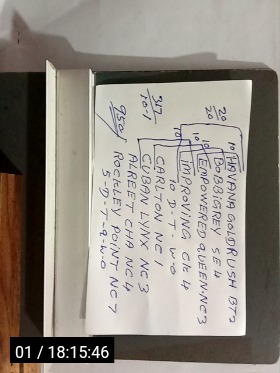 20
20
10 HAVANA GOLDRUSH BT2
10 BOBBIGREY SE4
10 EMPOWERED QUEEN NC3
10 IMPROVING CK4
10 D-T-W-O
317
10-1
CARLTON NC1
CUBAN LYNX NC3
ALREET CHA NC4
ROCKLEY POINT NC7
5-D-T-Q-W-O
950/
01 / 18:15:46